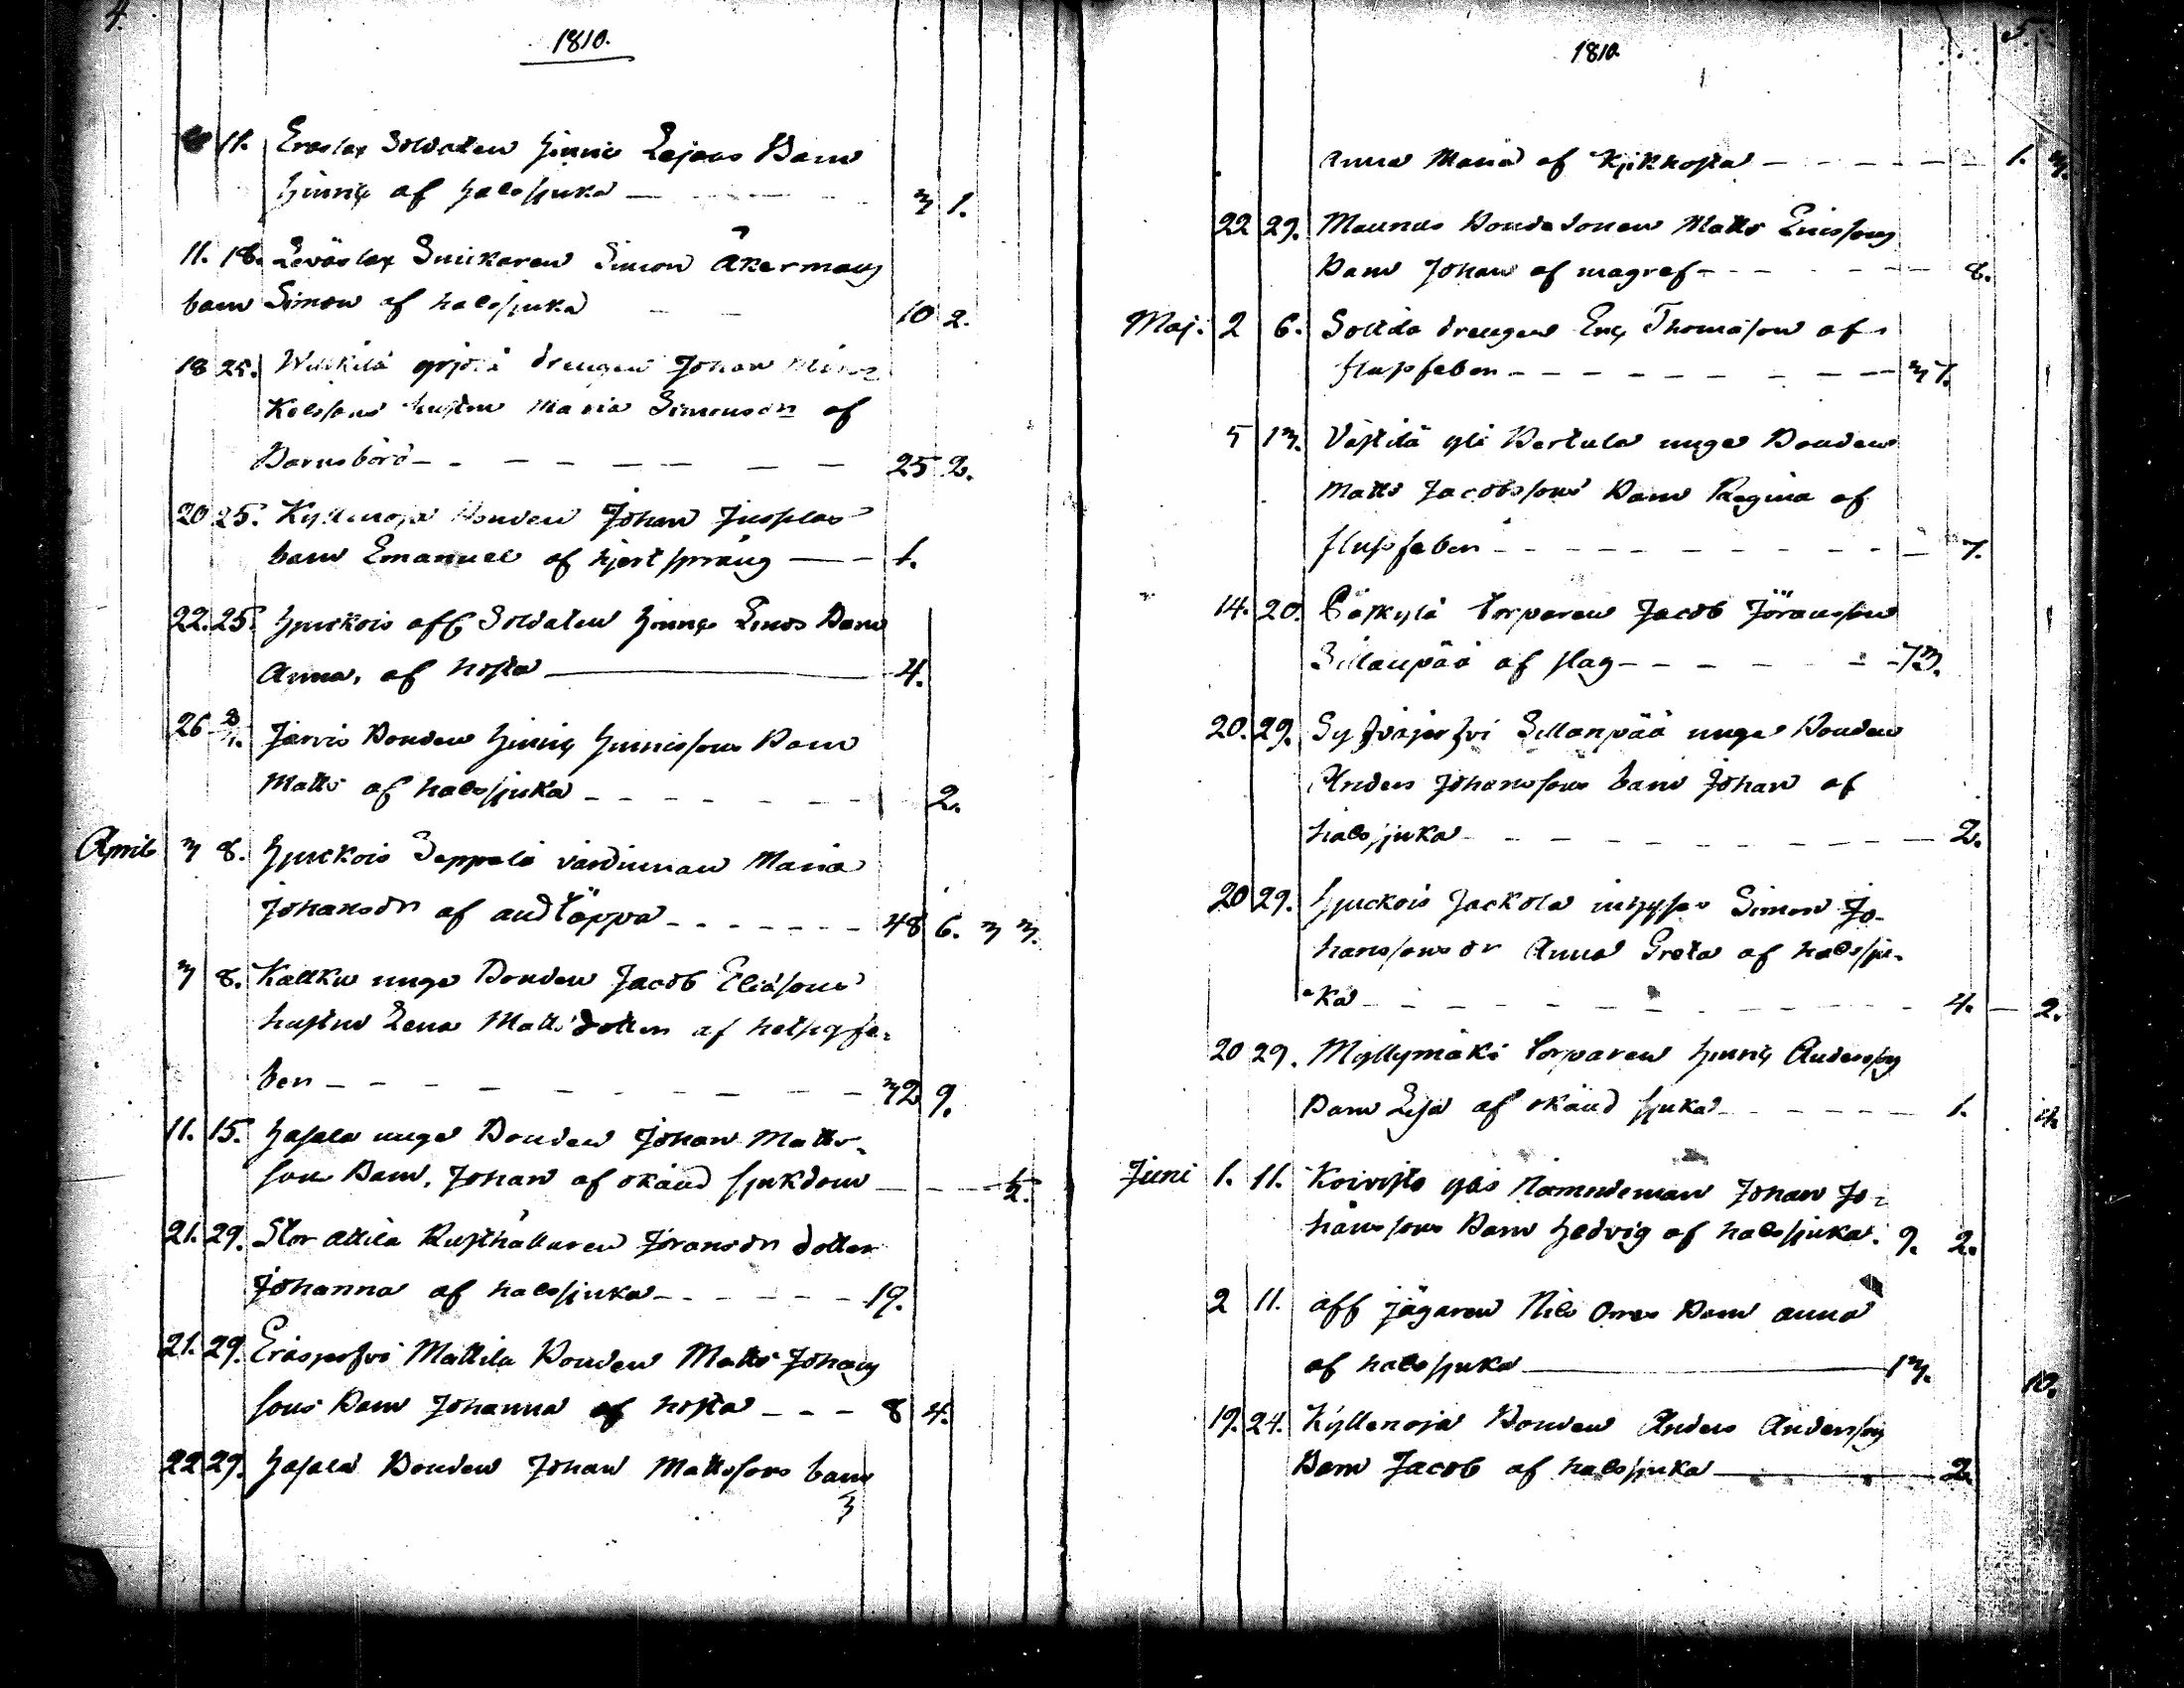 4.
1810.
11. Eräslax Soldaten Hinric Lejons Barn
Hinric af halssjuka — 3 1.
11. 18. Leväslax Snickaren Simon Åkermans
barn Simon af halssjuka 10 2.
18 25. yrjölä drengen Johan Mic=
kelssons hustru Maria Simonsdr af
Barnsbörd — 25 2.
20 25. Kyllenoja Bonden Johan
barn Emanuel af hjertsprång — 1.
22. 25. Hjuckois aff Soldaten Hinric Barn
Anna, af hosta — 4.
26 Järvis Bonden Hinric Hinricssons Barn
Matts af halssjuka — 2.
April 3 8. Hjuckois Seppälä värdinnan Maria
Johansdr af andtäppa — 48 6. 3 3.
3 8. Kallku unge Bonden Jacob Eliassons
hustru Lena Mattsdotter af hetsigfe=
ber — 32 9.
11. 15. Hasala unge Bonden Johan Matts=
sons Barn, Johan af okänd sjukdom — ½.
21. 29. Stor Attila Rusthållaren Göransdr dotter
Johanna af halssjuka — 19.
21. 29. Eräsperfvi Mattila Bonden Matts Johans
sons Barn Johanna af hosta — 8 4.
22 29. Hasala Bonden Johan Mattssons barn
5.
1810.
Anna Maria af Kjikhosta — 1. 3.
22 29. Maunus Bondesonen Matts Ericssons
Barn Johan af magref — 8.
Maj. 2 6. Sottila drengen Eric Thomasson af
flussfeber — 37.
5 13. Västilä yli Bertula unge Bonden
Matts Jacobssons Barn Regina af
flussfeber — 7.
14. 20. torparen Jacob Jöransson
Sillanpää af slag — 73.
20. 29. Syfväjerfvi Sillanpää unge Bonden
Anders Johanssons barn Johan af
halssjuka — 2.
20 29. Hjuckois Jackola inhyses Simon Jo-
hanssons dr Anna Greta af halssju-
ka — 4. — 2.
20 29. Myllymäki torparen Hinric Anderssons
Barn Lisa af okänd sjuka — 1.
Juni 1. 11. Koivisto Nämndeman Johan Jo=
hanssons Barn Hedvig af halssjuka. 9. 2.
2 11. aff jägaren Nils Orres Barn Anna
af halssjuka — 13. 10.
19. 24. Kyllenoja Bonden Anders Anderssons
Barn Jacob af halssjuka — 2